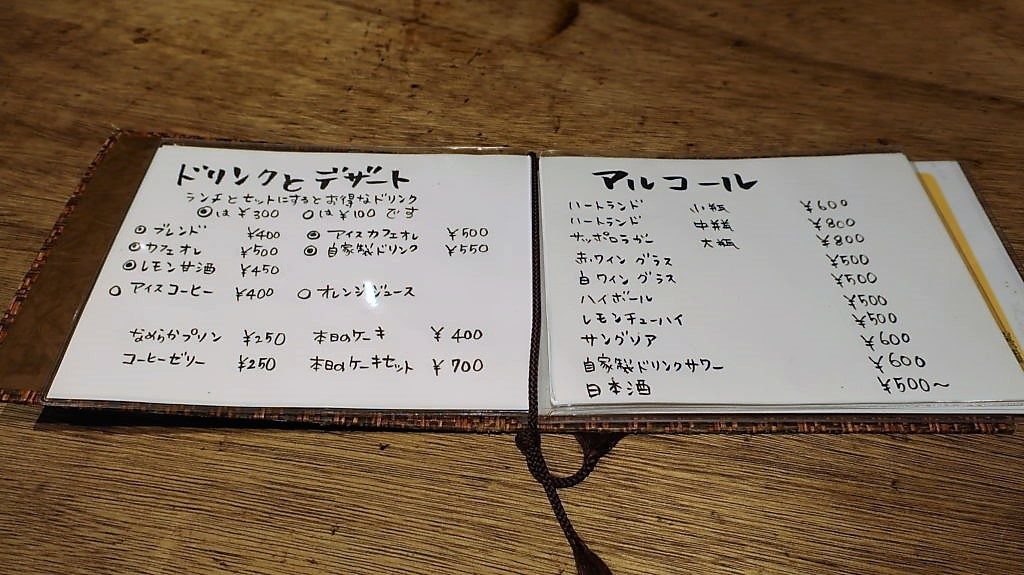 ドリンクとデザート
ランチとセットにするとお得なドリンク
◎は¥300 ○は¥100です
◎ブレンド ¥400 ◎アイスカフェオレ ¥500
◎カフェオレ ¥500 ◎自家製ドリンク ¥550
◎レモンサ酒 ¥450
○アイスコーヒー ¥400 ○オレンジジュース
なめらかプリン ¥250 本日のケーキ ¥400
コーヒーゼリー ¥250 本日のケーキセット ¥700
アルコール
ハートランド 小瓶 ¥600
ハートランド 中瓶 ¥800
サッポロラガー 大瓶 ¥800
赤ワイン グラス ¥500
白ワイン グラス ¥500
ハイボール ¥500
レモンチューハイ ¥500
サングリア ¥600
自家製ドリンクサワー ¥600
日本酒 ¥500〜